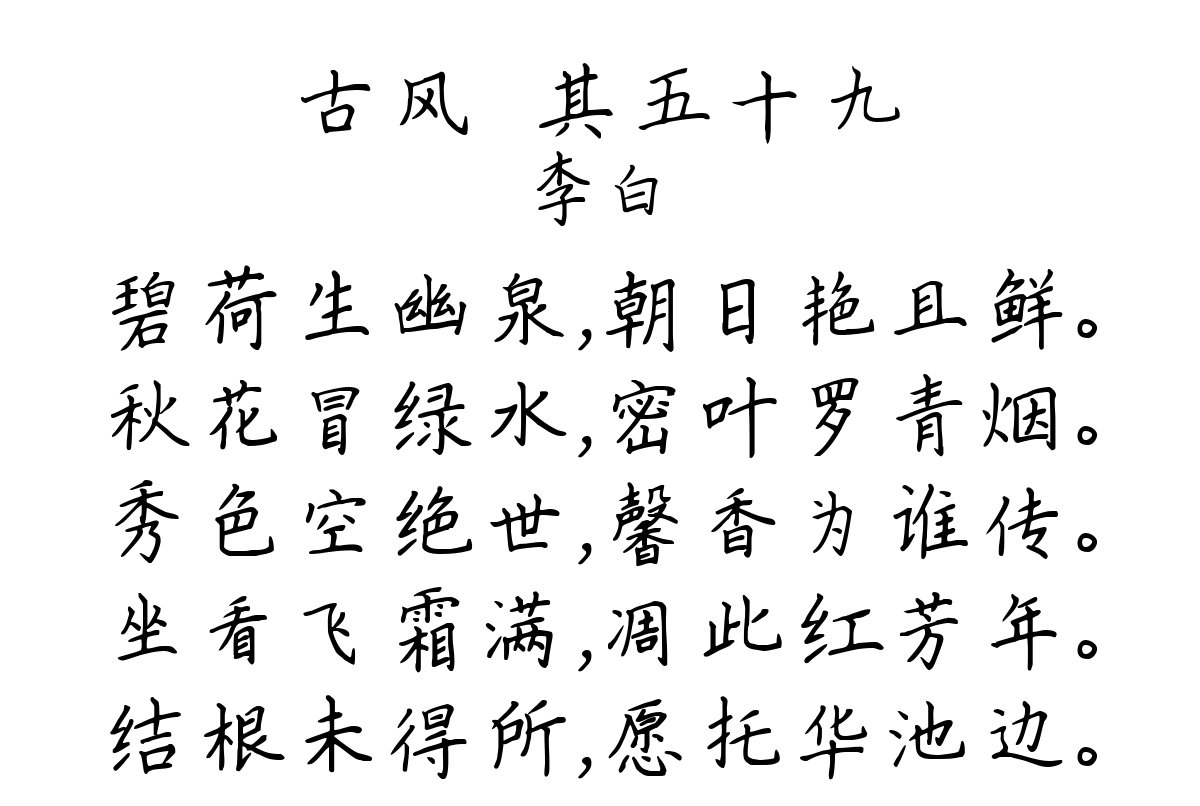 古风 其五十九
李白
碧荷生幽泉,朝日艳且鲜。
秋花冒绿水,密叶罗青烟。
秀色空绝世,馨香为谁传。
坐看飞霜满,凋此红芳年。
结根未得所,愿托华池边。